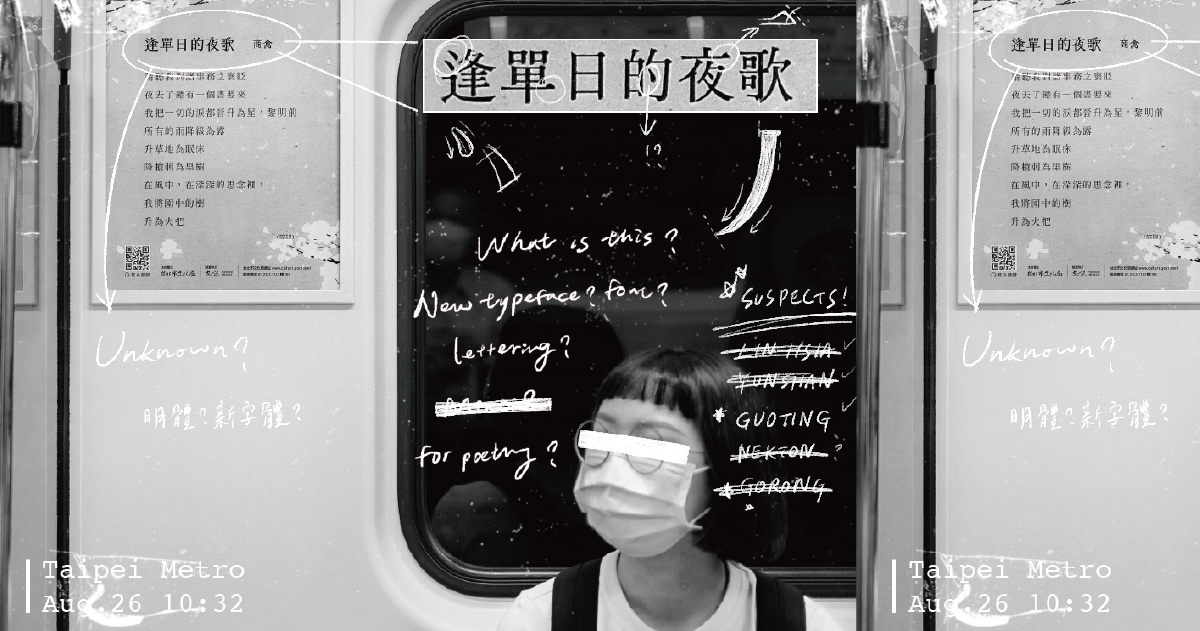 逢單日的夜歌 商禽
夜去了總有一個晝要來
我把一切的淚都晉升為星，黎明前
所有的雨降級為露
升草地為眠床
降槍刺為果樹
在風中，在深深的思念裡，
我將園中的樹
升為火把
Unknown?
明體?新字體?
Taipei Metro
Aug.26 10:32
逢單日的夜歌
!?
What is this?
New typeface? font?
lettering?
for poetry?
SUSPECTS!
LIN HSIA
YUNSHAN
GUOTING
NEKTON ?
GORONG
逢單日的夜歌 商禽
夜去了總有一個晝要來
我把一切的淚都晉升為星，黎明前
所有的雨降級為露
升草地為眠床
降槍刺為果樹
在風中，在深深的思念裡，
我將園中的樹
升為火把
Unknown?
明體?新字體?
Taipei Metro
Aug.26 10:32